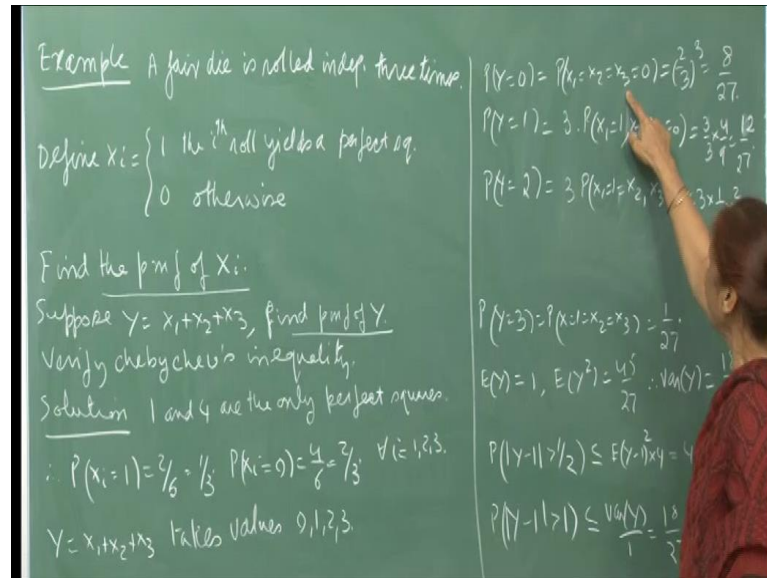 Example A fair die is rolled indep. three times.
Define Xi = { 1 the ith roll yields a perfect sq.
0 otherwise
Find the pmf of Xi.
Suppose Y = x1+x2+x3, find pmf of Y.
Verify chebychev's inequality.
Solution 1 and 4 are the only perfect squares.
∴ P(xi=1) = 2/6 = 1/3 P(xi=0) = 4/6 = 2/3 ∀ i=1,2,3.
Y = x1+x2+x3 takes values 0,1,2,3.
P(Y=0) = P(x1=x2=x3=0) = (2/3)^3 = 8/27.
P(Y=1) = 3. P(x1=1, =0) = 3/3 x 4/9 = 12/27.
P(Y=2) = 3 P(x1=1=x2, x3 = 3x1 2
P(Y=3) = P(x=1=x2=x3) = 1/27.
E(Y) = 1, E(Y²) = 45/27 ∴ Var(Y) = 18
P(|Y-1| > 1/2) ≤ E(Y-1)² x 4 = 4
P(|Y-1| > 1) ≤ Var(Y)/1 = 18/27